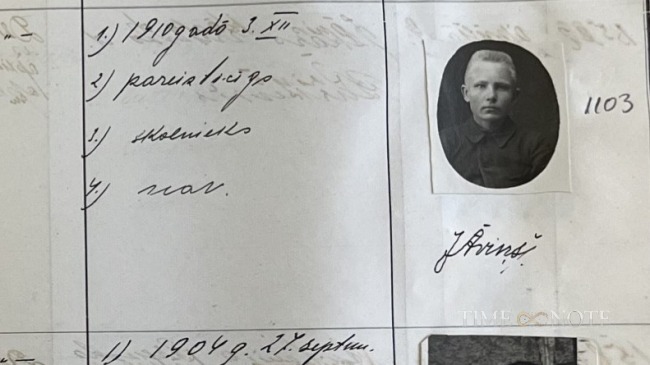 1.) 1910 gadā 3. XII
2) pareizticīgs
3.) skolnieks
4.) nav.
1103
TIME NOTE
1) 1904 g. 27. septem.